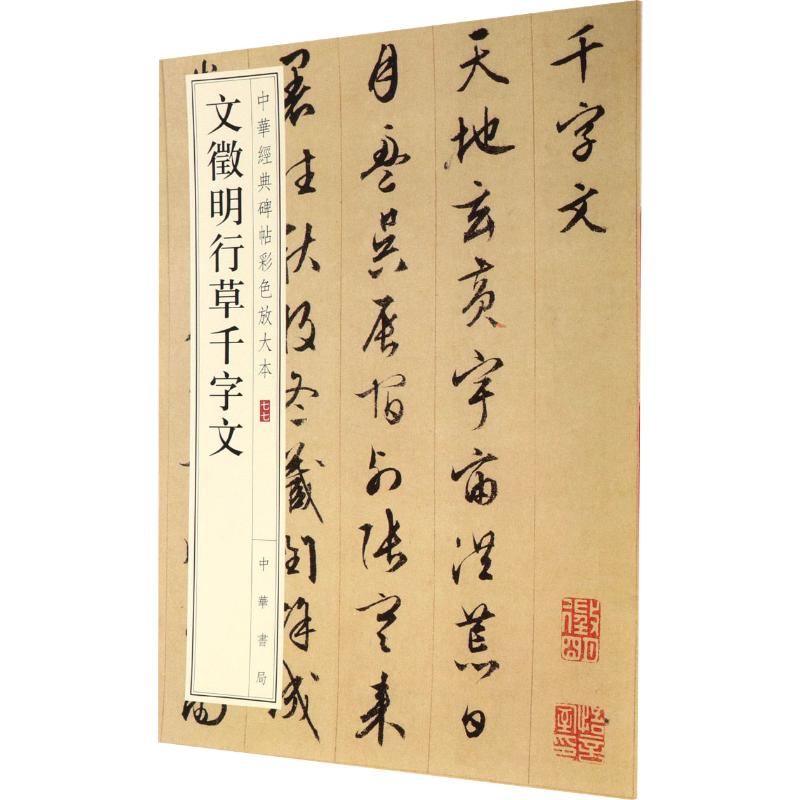 千字文
天地玄黃宇宙洪荒日
月盈昃辰宿列張寒來
暑往秋收冬藏閏餘成
徵明
悟言室印
中華經典碑帖彩色放大本
七七
中華書局
文徵明行草千字文